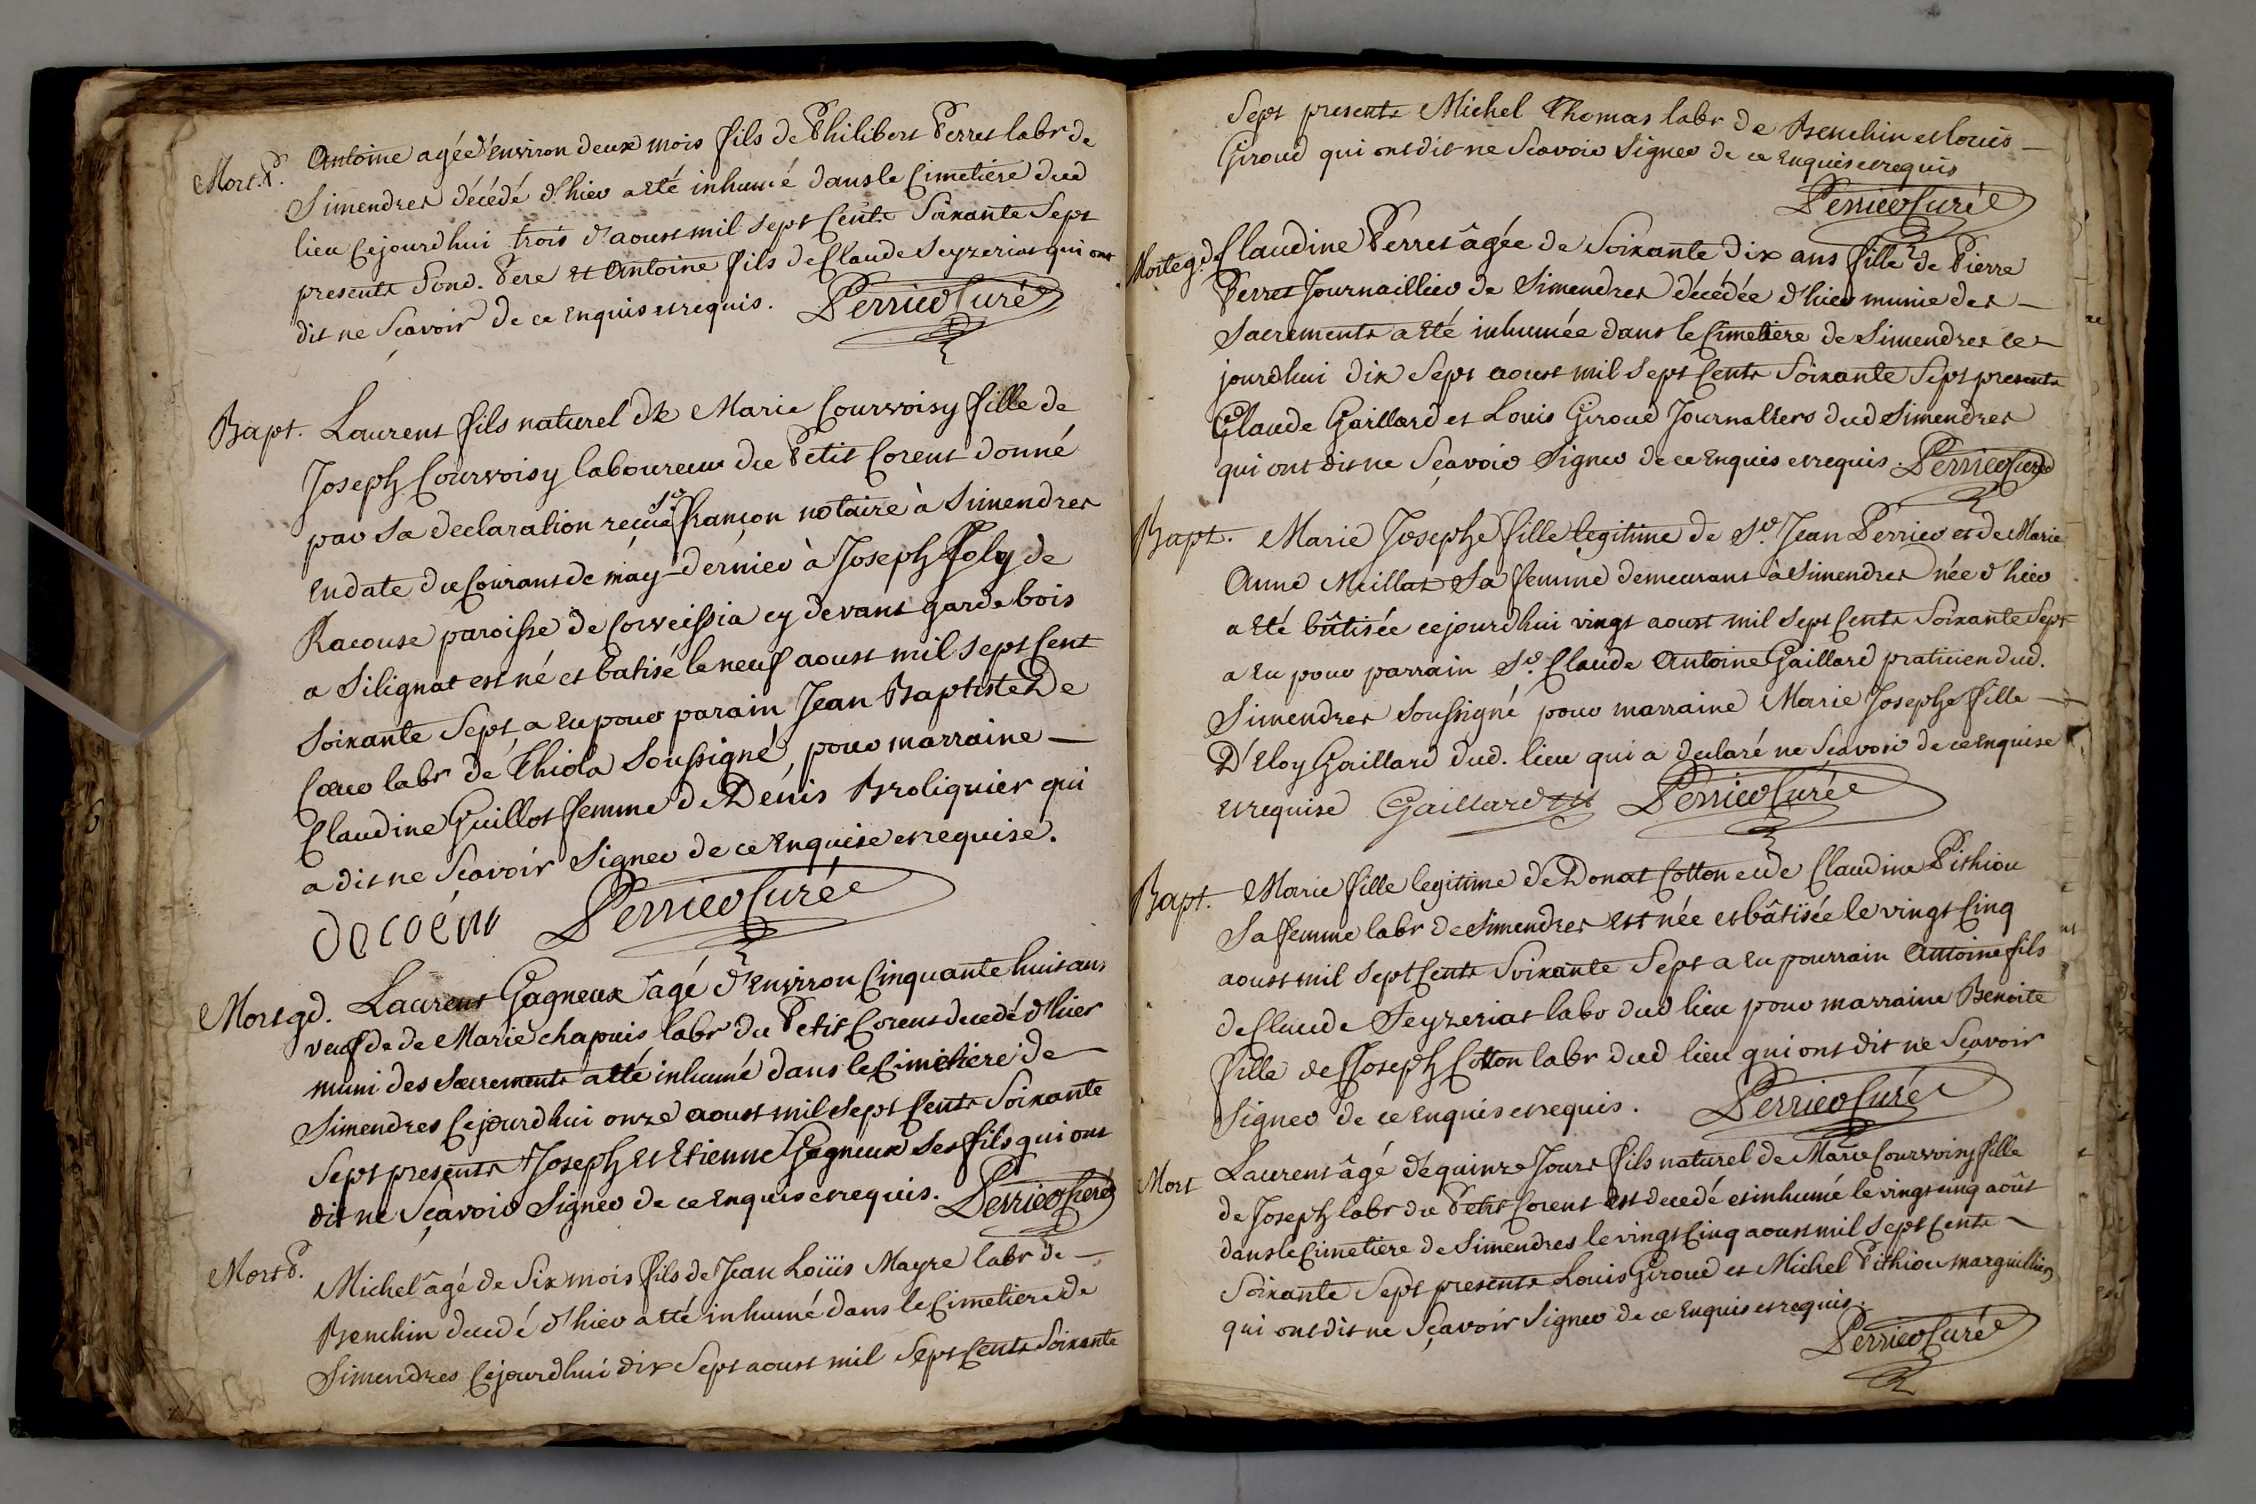 Mort.P. Antoine agée d'environ deux mois fils de Philibert Perret labr de
Simendres décédé d'hier a été inhumé dans le Cimetiere dud
lieu Cejourdhui trois d'aoust mil sept Cents Soixante Sept
presents Sond. Pere et Antoine fils de Claude Seyzeriat qui ont
dit ne Sçavoir de ce Enquis et requis. Perrier Curé
Bapt. Laurent fils naturel de Marie Courvoisy fille de
Joseph Courvoisy laboureur du Petit Corent donné
par Sa declaration reçuë Françon notaire à Simendres
En date du Courant de may dernier à Joseph Foly de
Racouse paroisse de Corveissia cy devant garde bois
a Silignat est né et batisé le neuf aoust mil sept Cent
Soixante Sept a Eu pour parain Jean Baptiste De
Cœur labr de Thiola Soussigné, pour marraine —
Claudine Guillot femme de Dénis Broliquier qui
a dit ne Scavoir Signer de ce Enquise et requise.
decoeur Perrier Curé
Mort gd. Laurent Gagneux âgé d'Environ Cinquante huit ans
veuf de de Marie chapuis labr du Petit Corent decedé d'hier
muni des Sacrements a été inhumé dans le Cimetiere de
Simendres Cejourdhui onze aoust mil Sept Cents Soixante
Sept presents Joseph Et Etienne Gagneux Ses fils qui ont
dit ne Sçavoir Signer de ce Enquis et requis. Perrier Curé
Mort P. Michel âgé de Six mois fils de Jean Loüis Mayre labr de —
Benchin decedé d'hier a été inhumé dans le Cimetiere de
Simendres Cejourdhui dix Sept aoust mil Sept Cents Soixante
Sept presents Michel Thomas labr de Benchin et Louis —
Giroud qui ont dit ne Scavoir Signer de ce Enquis et requis
Perrier Curé
Morte gd. Claudine Perret âgée de Soixante dix ans fille de Pierre
Perret Journaillier de Simendres décédée d'hier munie des —
Sacrements a été inhumée dans le Cimetiere de Simendres ce —
jourdhui dix Sept aoust mil Sept Cents Soixante Sept presents
Claude Gaillard et Louis Giroud Journaliers dud Simendres
qui ont dit ne Sçavoir Signer de ce Enquis et requis. Perrier Curé
Bapt. Marie Josephe fille legitime de Sr. Jean Perrier et de Marie
Anne Meillat Sa femme demeurant à Simendres née d'hier
a été bâtisée cejourdhui vingt aoust mil Sept Cents Soixante Sept
a Eu pour parrain Sr. Claude Antoine Gaillard praticien dud.
Simendres Soussigné pour marraine Marie Josephe fille —
D'Eloy Gaillard dud. lieu qui a declaré ne Sçavoir de ce Enquise
et requise Gaillard Perrier Curé
Bapt. Marie fille legitime de Donat Cotton et de Claudine Pithiou
Sa femme labr de Simendres est née et bâtisée le vingt Cinq
aoust mil Sept Cents Soixante Sept a Eu pourrain Antoine fils
de Claude Seyzeriat labr dud lieu pour marraine Benoite
fille de Joseph Cotton labr dud lieu qui ont dit ne Sçavoir
Signer de ce Enquis et requis. Perrier Curé
Mort Laurent âgé de quinze Jours fils naturel de Marie Courvoisy fille
de Joseph labr du Petit Corent est decedé et inhumé le vingt cinq août
dans le Cimetiere de Simendres le vingt Cinq aoust mil Sept Cents —
Soixante Sept presents Louis Giroud et Michel Pithiou marguillier
qui ont dit ne Sçavoir Signer de ce Enquis et requis.
Perrier Curé